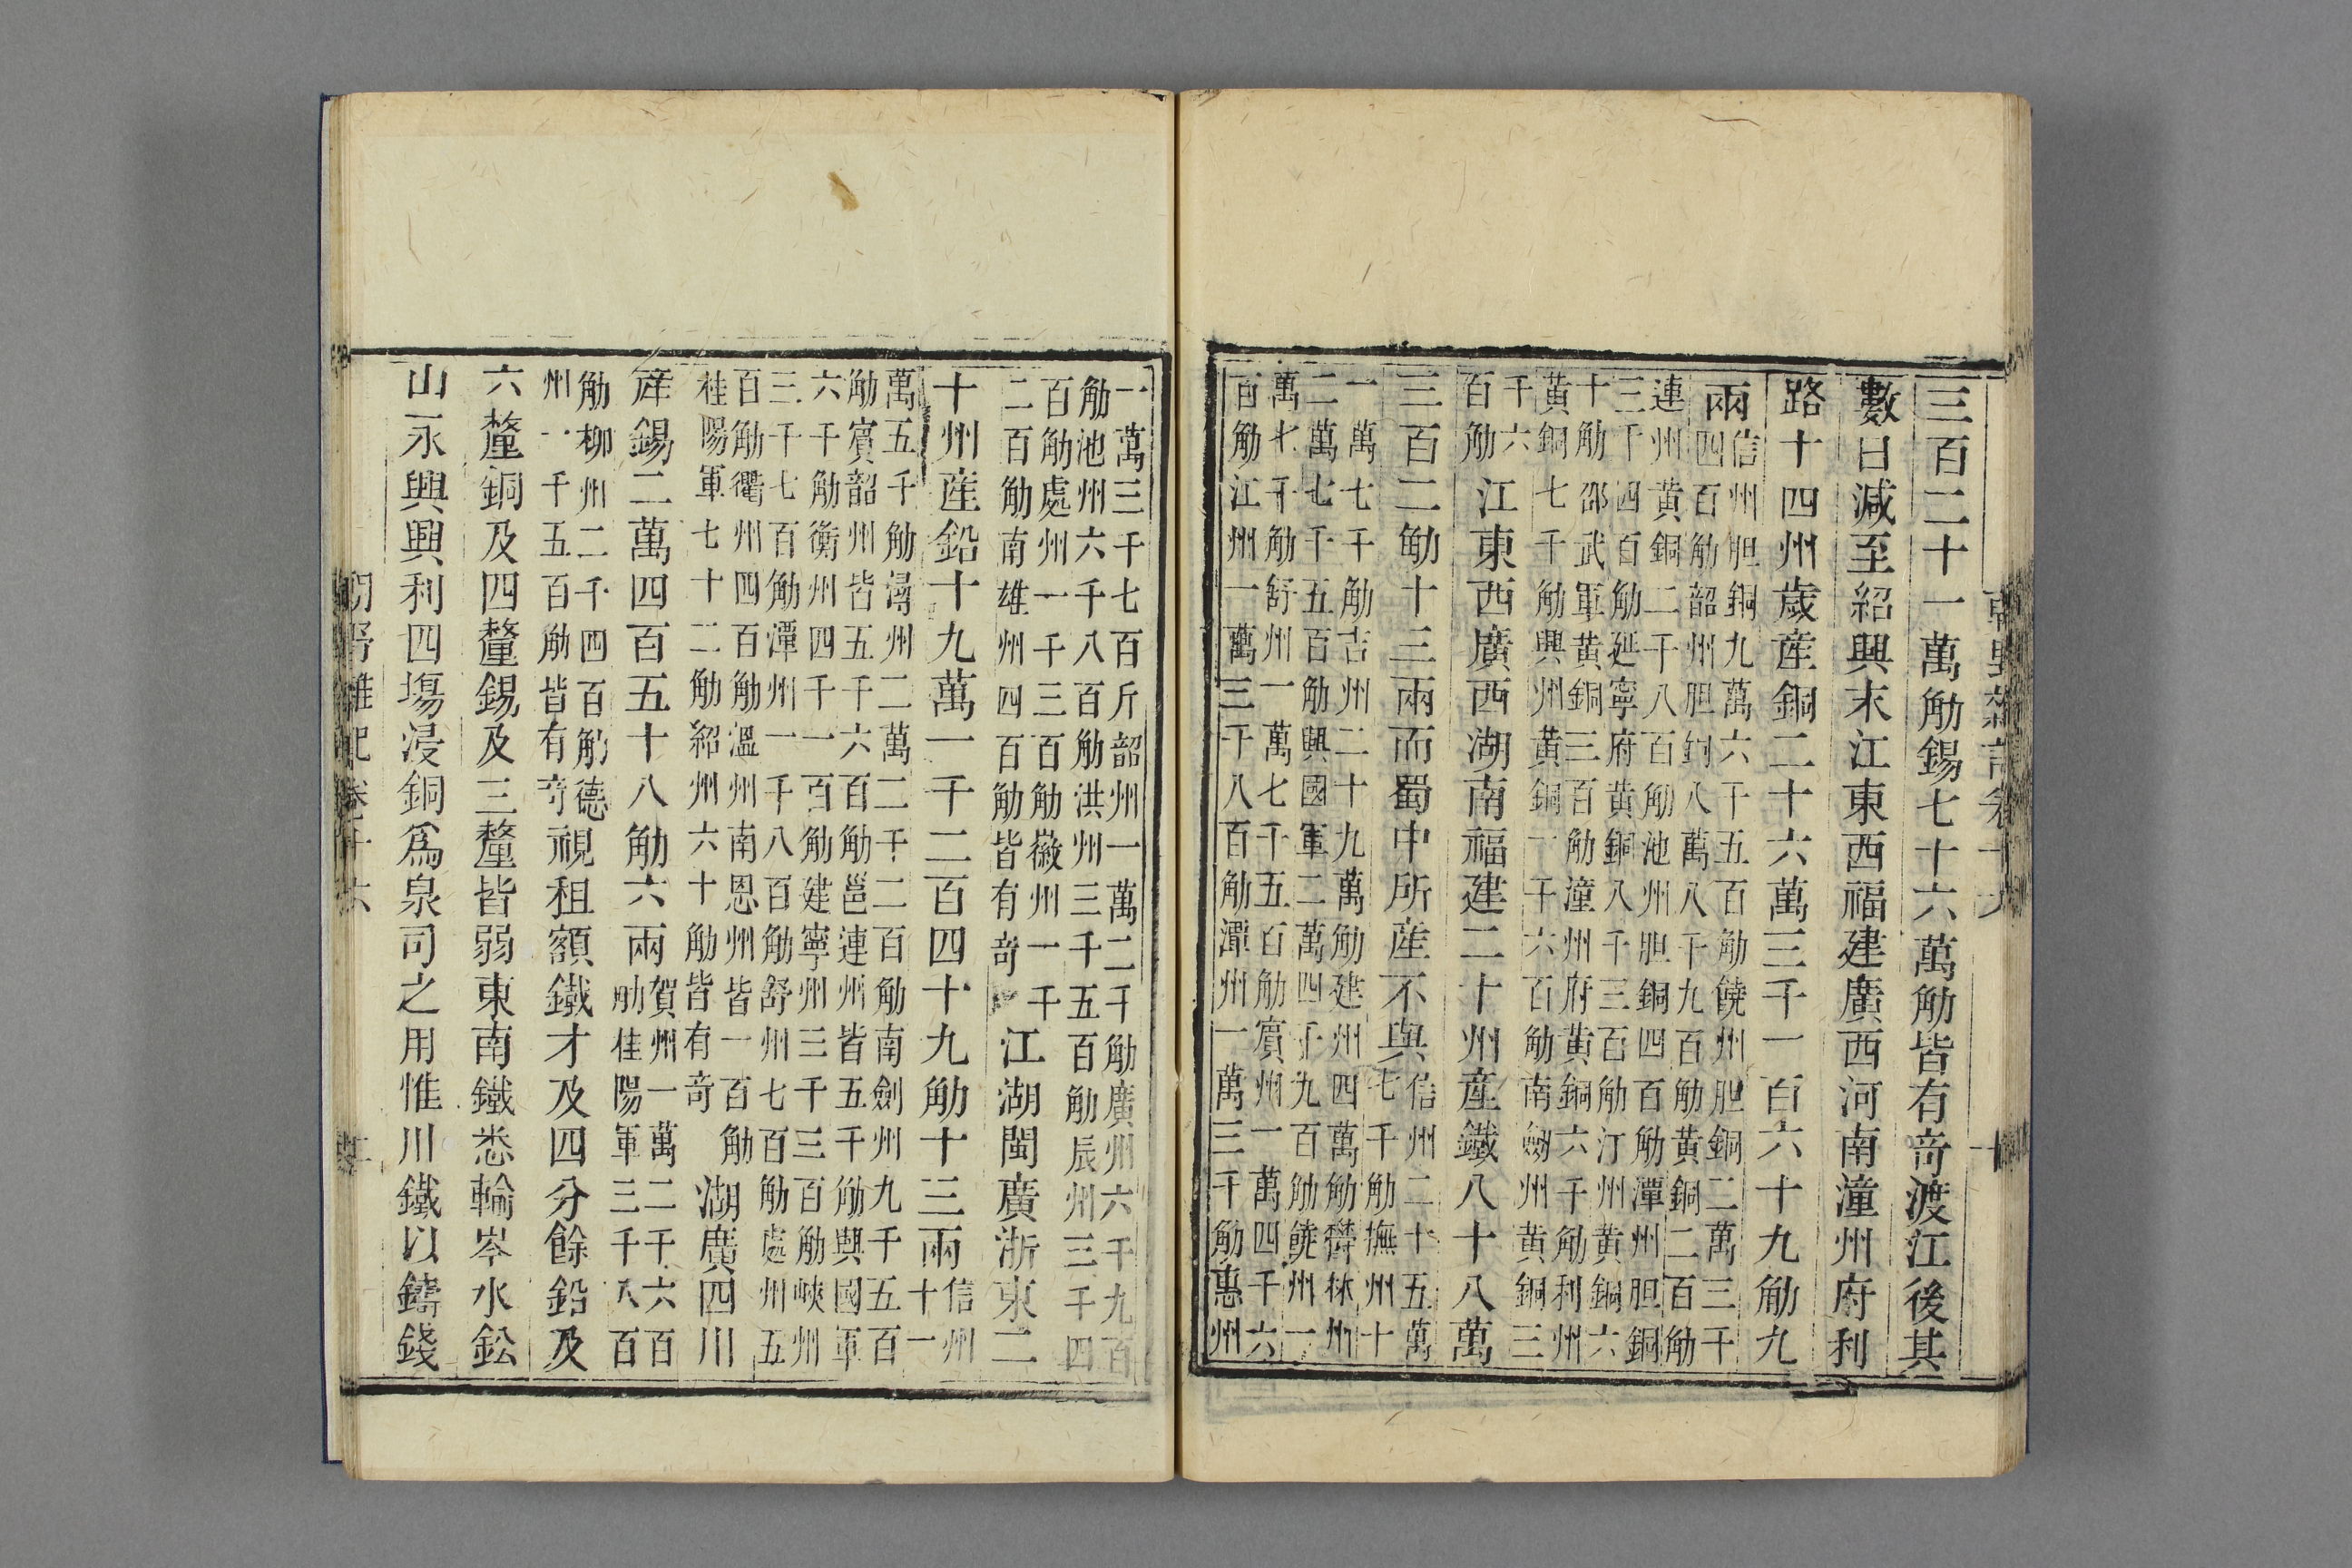 朝野雜記卷十六 十
三百二十一萬觔錫七十六萬觔皆有奇渡江後其
數日減至紹興末江東西福建廣西河南潼州府利
路十四州歲産銅二十六萬三千一百六十九觔九
兩
信州胆銅九萬六千五百觔饒州胆銅二萬三千
四百觔韶州胆銅八萬八千九百觔黄銅二百觔
連州黄銅二千八百觔池州胆銅四百觔潭州胆銅
三千四百觔延寧府黄銅八千三百觔汀州黄銅六
十觔邵武軍黄銅三百觔潼州府黄銅六千觔利州
黄銅七千觔興州黄銅一千六百觔南劒州黄銅三
千六
百觔
江東西廣西湖南福建二十州産鐵八十八萬
三百二觔十三兩而蜀中所産不與
信州二十五萬
七千觔撫州十
一萬七千觔吉州二十九萬觔建州四萬觔欝林州
二萬七千五百觔興國軍二萬四千九百觔饒州一
萬七千觔舒州一萬七千五百觔賓州一萬四千六
百觔江州一萬三千八百觔潭州一萬三千觔惠州
一萬三千七百斤韶州一萬二千觔廣州六千九百
觔池州六千八百觔洪州三千五百觔辰州三千四
百觔處州一千三百觔徽州一千
二百觔南雄州四百觔皆有奇
江湖閩廣浙東二
十州産鉛十九萬一千二百四十九觔十三兩
信州
十一
萬五千觔潯州二萬二千二百觔南劍州九千五百
觔賓韶州皆五千六百觔邕連州皆五千觔興國軍
六千觔衡州四千一百觔建寧州三千三百觔峽州
三千七百觔潭州一千八百觔舒州七百觔處州五
百觔衢州四百觔溫州南恩州皆一百觔
桂陽軍七十二觔紹州六十觔皆有奇
湖廣四川
産錫二萬四百五十八觔六兩
賀州一萬二千六百
觔桂陽軍三千八百
觔柳州二千四百觔德
州一千五百觔皆有奇
視租額鐵才及四分餘鉛及
六釐銅及四釐錫及三釐皆弱東南鐵悉輸岑水鈆
山永興興利四塲浸銅爲泉司之用惟川鐵以鑄錢
朝野雜記卷十六